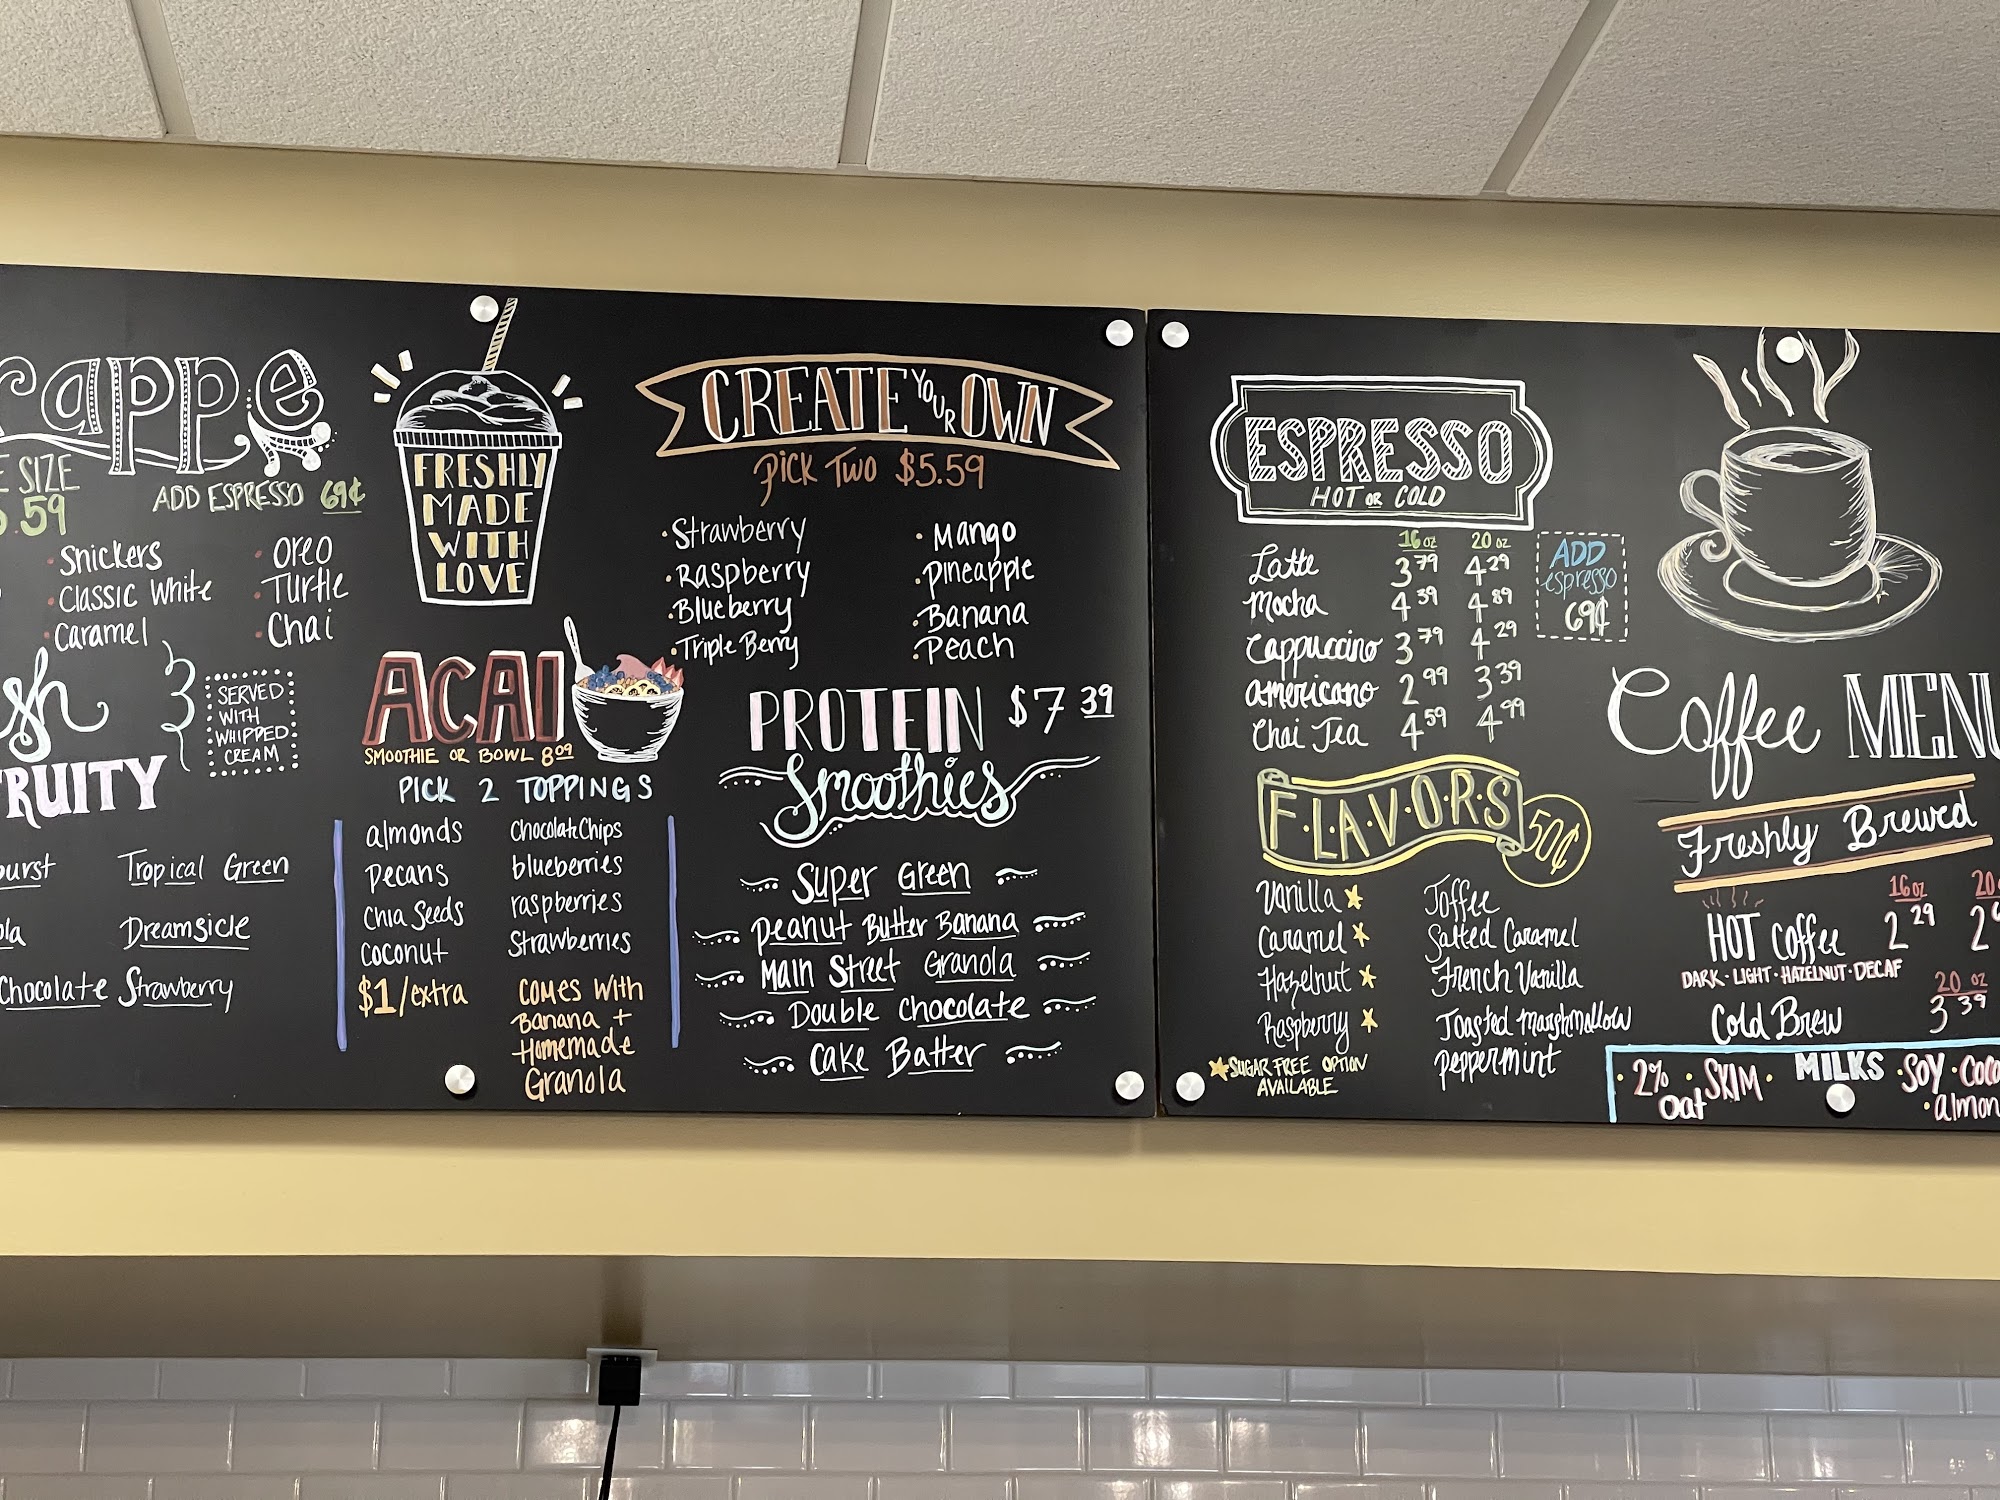 rappe
SIZE
.59
ADD ESPRESSO 69¢
• Snickers
• Classic White
• Caramel
• Oreo
• Turtle
• Chai
SERVED
WITH
WHIPPED
CREAM
FRUITY
Tropical Green
Dreamsicle
Chocolate Strawberry
FRESHLY
MADE
WITH
LOVE
ACAI
SMOOTHIE OR BOWL 8.09
PICK 2 TOPPINGS
almonds
pecans
Chia Seeds
coconut
$1/extra
Chocolate Chips
blueberries
raspberries
Strawberries
COMES WITH
Banana +
Homemade
Granola
CREATE YOUR OWN
PICK TWO $5.59
• Strawberry
• Raspberry
• Blueberry
• Triple Berry
• Mango
• Pineapple
• Banana
• Peach
PROTEIN $7.39
Smoothies
Super Green
Peanut Butter Banana
Main Street Granola
Double Chocolate
Cake Batter
ESPRESSO
HOT OR COLD
16 oz 20 oz
Latte 3.79 4.29
Mocha 4.39 4.89
Cappuccino 3.79 4.29
Americano 2.99 3.39
Chai Tea 4.59 4.99
ADD
espresso
69¢
F•L•A•V•O•R•S 50¢
Vanilla ★
Caramel ★
Hazelnut ★
Raspberry ★
★ SUGAR FREE OPTION
AVAILABLE
Toffee
Salted Caramel
French Vanilla
Toasted Marshmallow
peppermint
Coffee MENU
Freshly Brewed
16 oz 20
HOT Coffee 2.29 2
DARK • LIGHT • HAZELNUT • DECAF
20 oz
Cold Brew 3.39
MILKS
• 2% • SKIM • • SOY •
oat